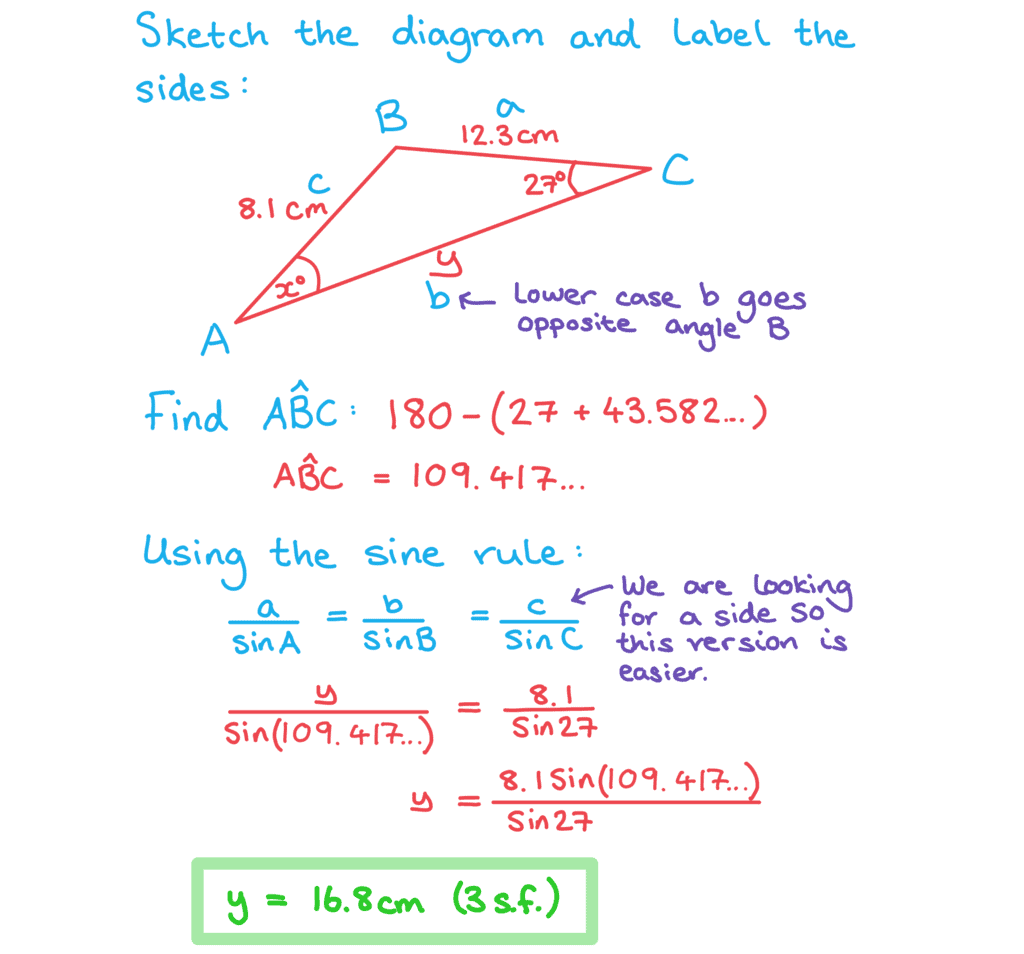 Sketch the diagram and label the
sides:
B
a
12.3cm
C
27°
c
8.1 cm
x°
y
b ← Lower case b goes
opposite angle B
A
Find AB̂C: 180 - (27 + 43.582...)
AB̂C = 109.417...
Using the sine rule:
a/sinA = b/sinB = c/sinC ← We are looking
for a side so
this version is
easier.
y/sin(109.417...) = 8.1/sin27
y = 8.1sin(109.417...)/sin27
y = 16.8cm (3 s.f.)